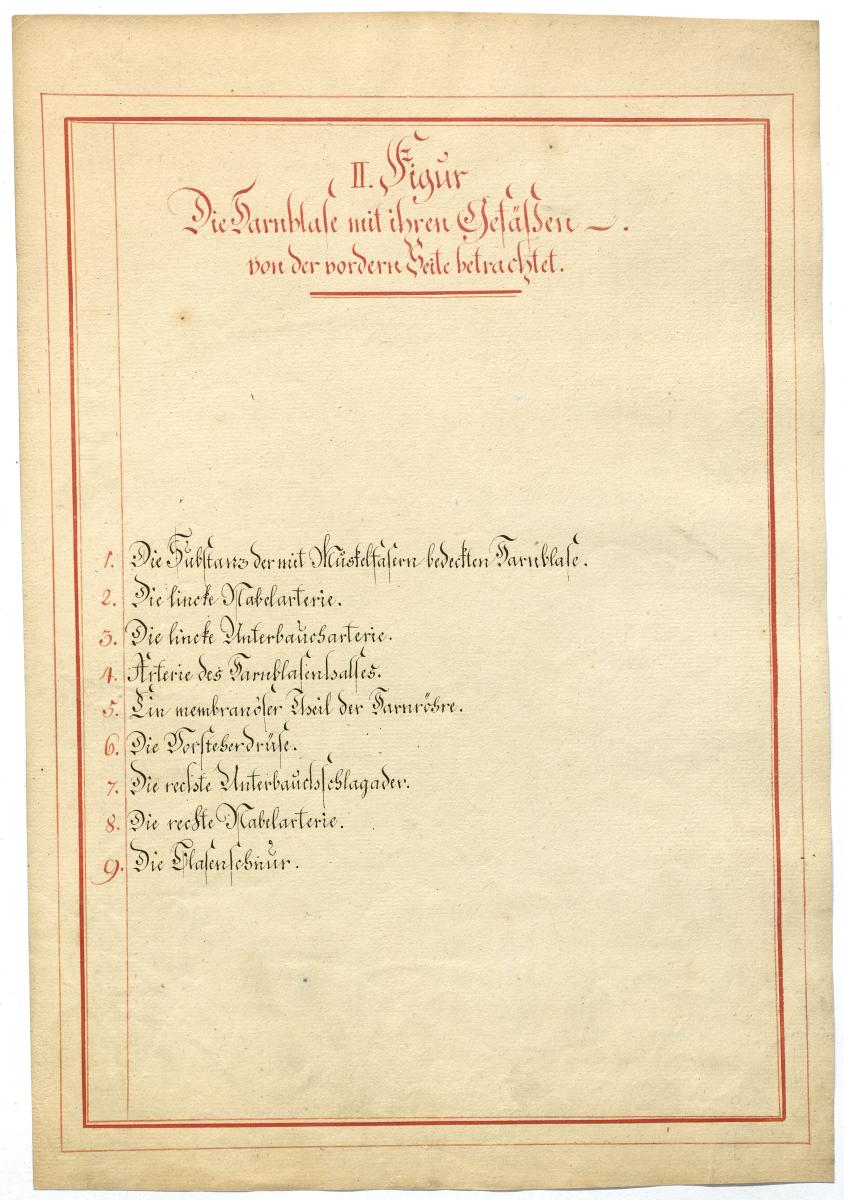 II. Figur
Die Harnblase mit ihren Gefäßen —.
von der vordern Seite betrachtet.
1. Die Substanz der mit Muskelfasern bedeckten Harnblase.
2. Die lincke Nabelarterie.
3. Die lincke Unterbaucharterie.
4. Arterie des Harnblasenhalses.
5. Ein membranöser Theil der Harnröhre.
6. Die Vorsteherdrüse.
7. Die rechte Unterbauchschlagader.
8. Die rechte Nabelarterie.
9. Die Blasenschnur.